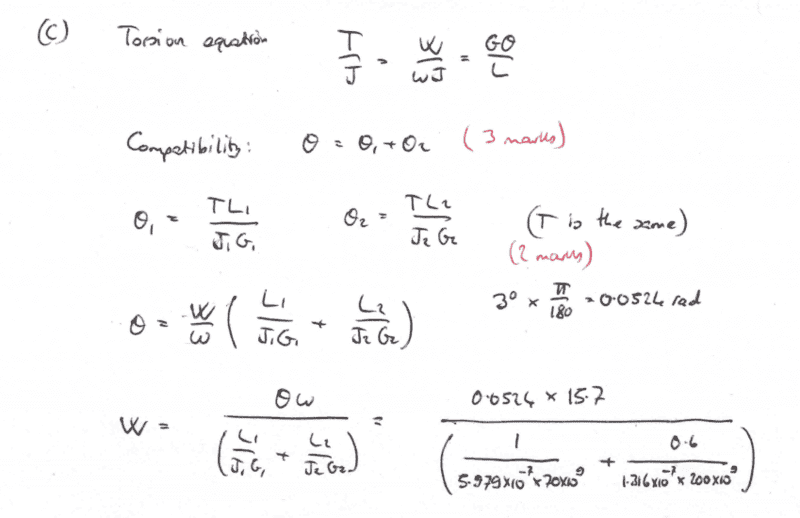 (c) Torsion equation T/J = W/ωJ = Gθ/L
Compatibility: θ = θ₁ + θ₂ (3 marks)
θ₁ = TL₁/J₁G₁ θ₂ = TL₂/J₂G₂ (T is the same)
(2 marks)
θ = W/ω (L₁/J₁G₁ + L₂/J₂G₂) 3° × π/180 = 0.0524 rad
W = θω/(L₁/J₁G₁ + L₂/J₂G₂) = 0.0524 × 15.7/(1/5.979×10⁻⁷×70×10⁹ + 0.6/1.316×10⁻⁷×200×10⁹)